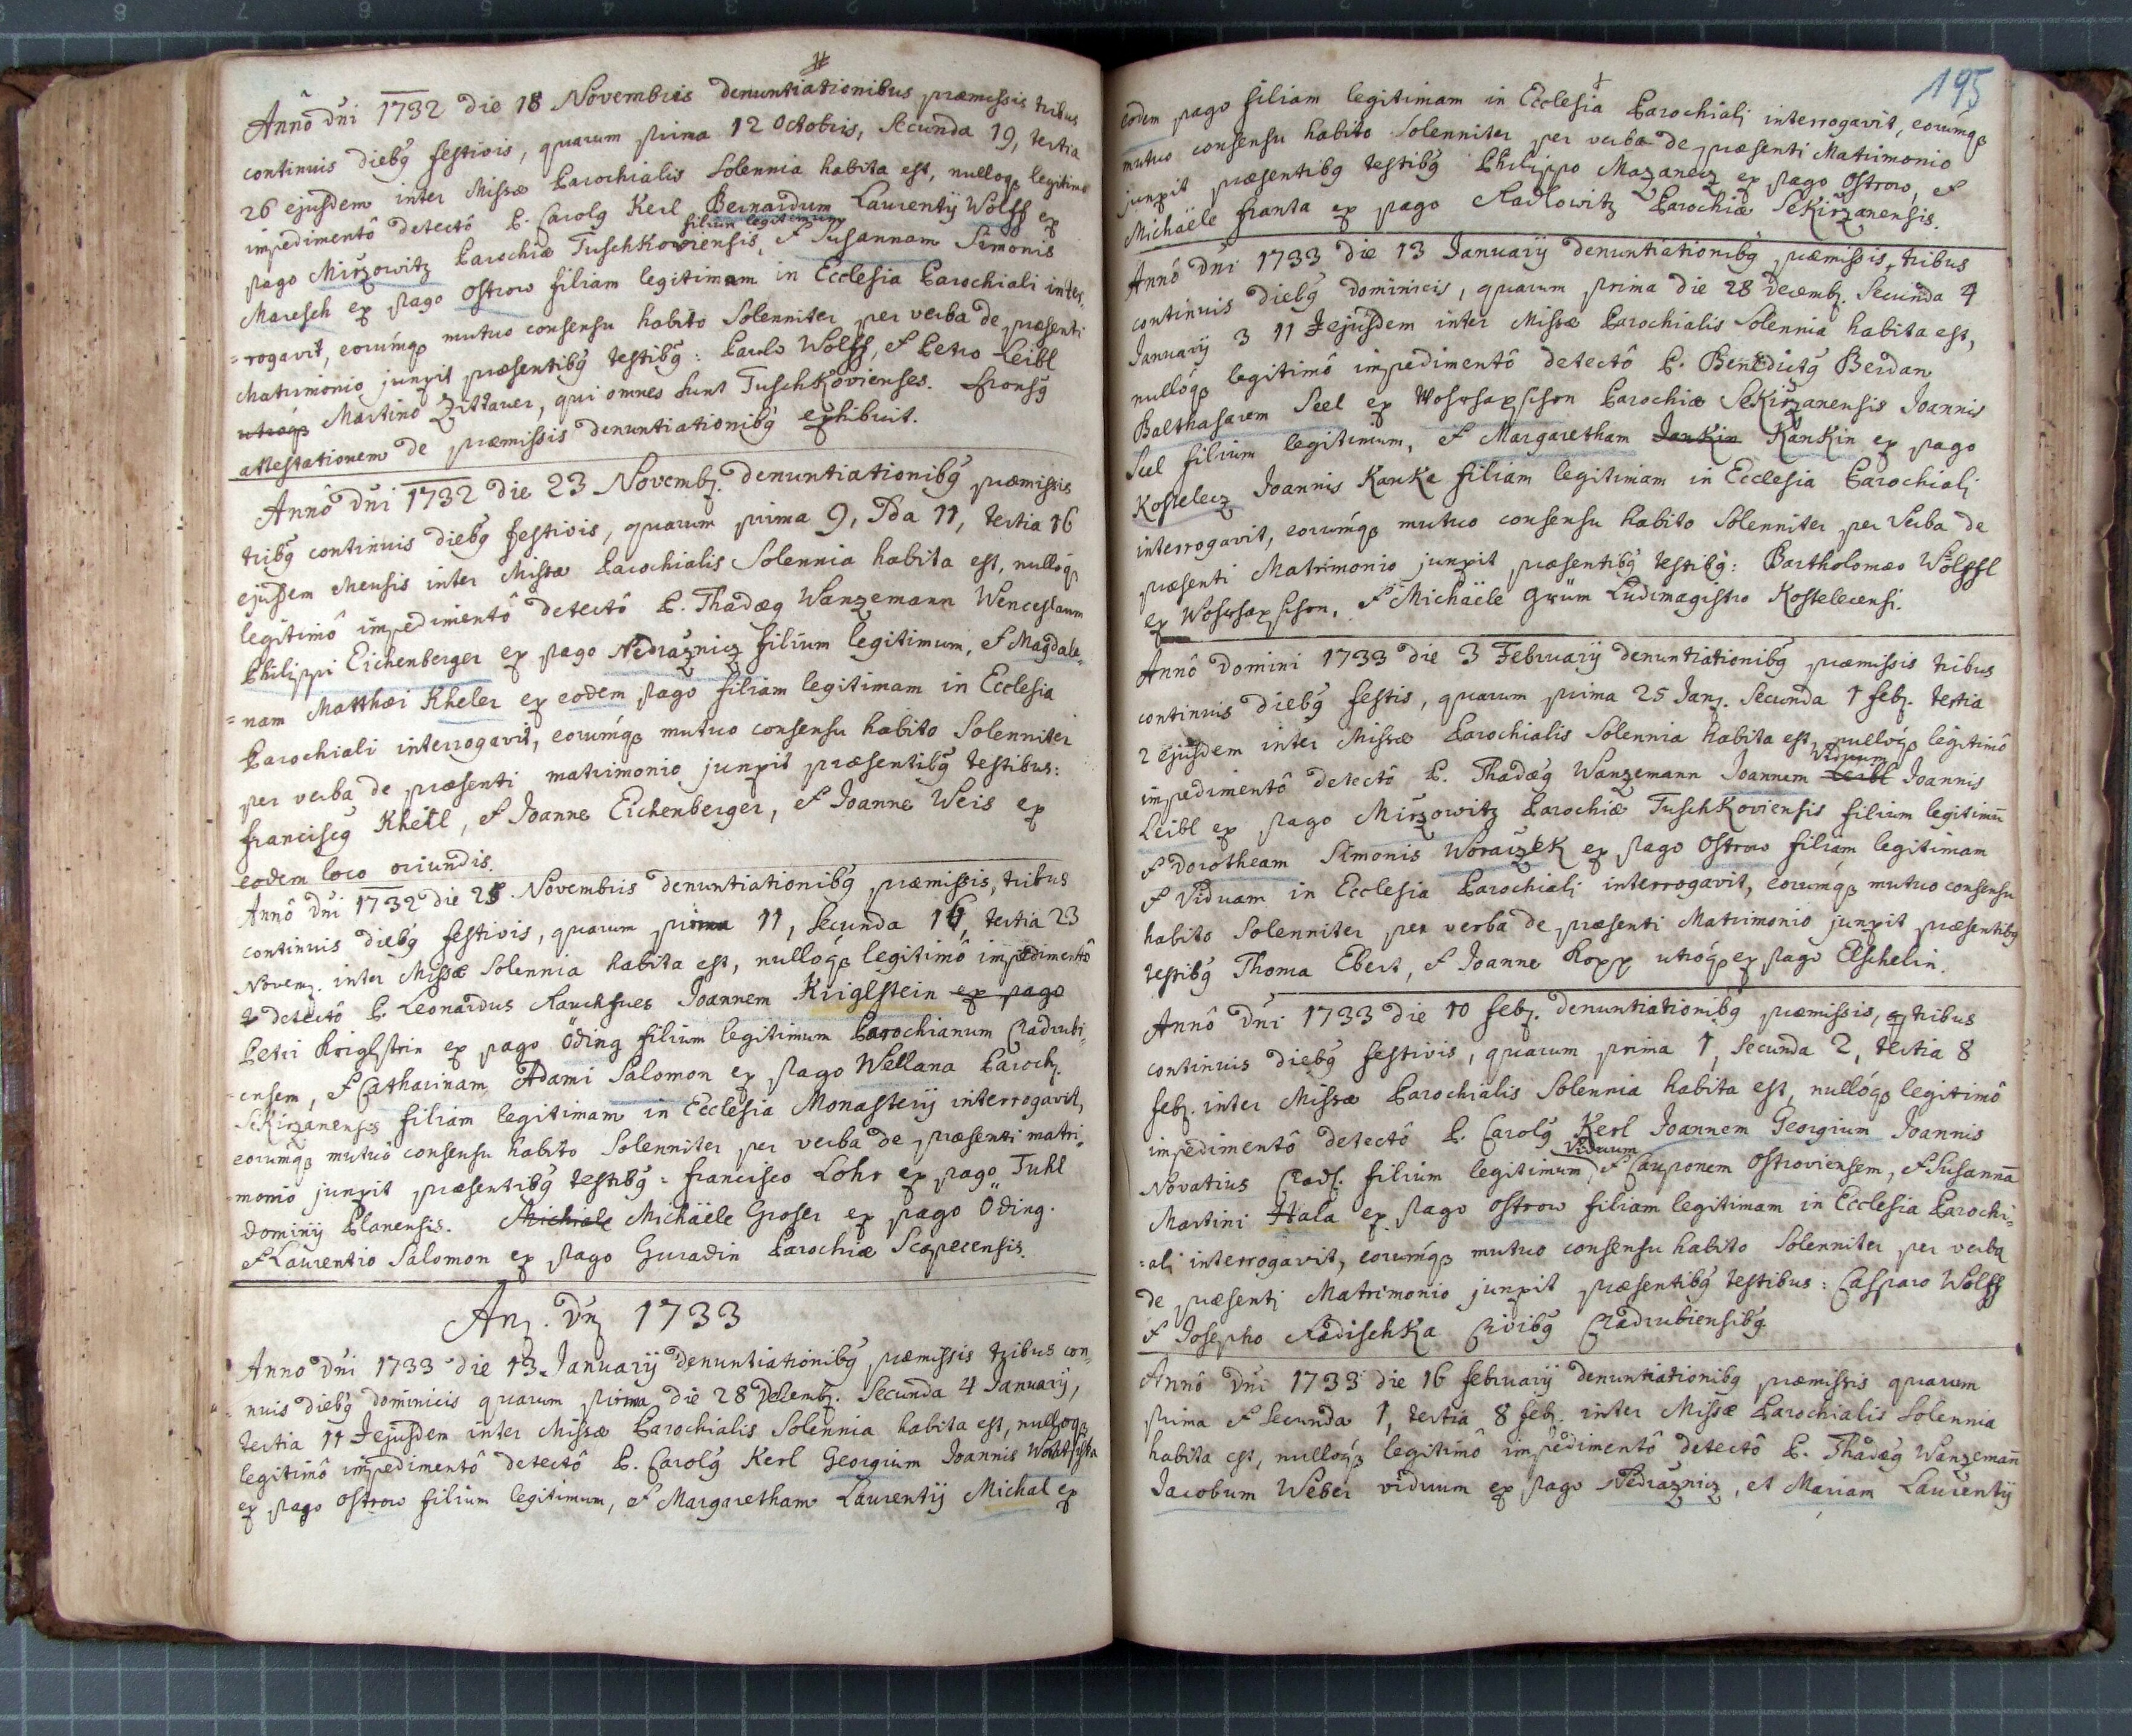 Annô Dni 1732 die 18 Novembris denuntiationibus præmissis tribus
continuis diebg festivis, quarum prima 12 Octobris, Secunda 19, tertia
26 ejusdem inter Missæ Parochialis Solennia habita est, nulloq legitimo
impedimentô detectô P. Carolg Kerl Bernardum Laurentij Wolff ex
filium legitimum
pago Mirzowitz Parochiæ Tuschkoviensis, et Susannam Simonis
Maresch ex pago Ostrow filiam legitimam in Ecclesia Parochiali inter-
=rogavit, eorumq mutuo consensu habito Solenniter per verba de præsenti
Matrimonio junxit præsentibg testibg: Paulo Wolff, et Petro Leibl
utroq Martino Zittaver, qui omnes sunt Tuschkovienses. Sponsg
attestationem de præmissis denuntiationibg exhibuit.
Annô Dni 1732 die 23 Novemb. denuntiationibg præmissis
tribg continuis diebg festivis, quarum prima 9, 2da 11, tertia 16
ejusdem Mensis inter Missæ Parochialis Solennia habita est, nulloq
legitimô impedimentô detectô P. Thadæg Wanzemann Wenceslaum
Philippi Eichenberger ex pago Nedraznicz filium legitimum, et Magdale-
=nam Matthæi Kheler ex eodem pago filiam legitimam in Ecclesia
Parochiali interrogavit, eorumq mutuo consensu habito Solenniter
per verba de præsenti matrimonio junxit præsentibg testibus:
Franciscg Kheil, et Joanne Eichenberger, et Joanne Weis ex
eodem loco oriundis.
Annô Dni 1732 die 25 Novembris denuntiationibg præmissis, tribus
continuis diebg festivis, quarum prima 11, Secunda 16, tertia 23
Novem. inter Missæ Solennia habita est, nulloq legitimô impedimentô
detectô P. Leonardus Rauchfues Joannem Kriglstein ex pago
Petri Kriglstein ex pago Öding filium legitimum Parochianum Cladrubi-
-ensem, et Catharinam Adami Salomon ex pago Wellana Paroch.
Sekirzanensis filiam legitimam in Ecclesia Monasterij interrogavit,
eorumq mutuô consensu habito Solenniter per verba de præsenti matri-
-monio junxit præsentibg testibg: Francisco Lohr ex pago Tuhl
Dominij Planensis. Michiale Michäele Groser ex pago Öding.
et Laurentio Salomon ex pago Guradin Parochiæ Scapecensis.
An. Dn 1733
Anno Dni 1733 die 13 Januarij denuntiationibg præmissis tribus con-
nuis diebg dominicis quarum prima die 28 Decemb. Secunda 4 Januarij,
tertia 11 ejusdem inter Missæ Parochialis Solennia habita est, nulloq
legitimô impedimentô detectô P. Carolg Kerl Georgium Joannis
ex pago Ostrow filium legitimum, et Margaretham Laurentij Michal ex
195
eodem pago filiam legitimam in Ecclesia Parochiali interrogavit, eorumq
mutuo consensu habito Solenniter per verba de præsenti Matrimonio
junxit præsentibg testibg Philippo Mazanecz ex pago Ostrow, et
Michäele Franta ex pago Radlowitz Parochiæ Sekirzanensis.
Annô Dni 1733 die 13 Januarij denuntiationibg præmissis, tribus
continuis diebg dominicis, quarum prima die 28 Decemb. Secunda 4
Januarij 3 11 ejusdem inter Missæ Parochialis Solennia habita est,
nulloq legitimô impedimentô detectô P. Benedictg Berdan
Balthasarem Seel ex Parochiæ Sekirzanensis Joannis
Seel filium legitimum, et Margaretham Jankin Kankin ex pago
Kostelecz Joannis Kanka filiam legitimam in Ecclesia Parochiali
interrogavit, eorumq mutuo consensu habito Solenniter per verba de
præsenti Matrimonio junxit præsentibg testibg: Bartholomæo Wölffl
ex et Michäele Grüm Ludimagistro Kostelecensi.
Annô Domini 1733 die 3 Februarij denuntiationibg præmissis tribus
continuis diebg festis, quarum prima 25 Jan. Secunda 1 feb. tertia
2 ejusdem inter Missæ Parochialis Solennia habita est, nulloq legitimô
Viduum
impedimentô detectô P. Thadæg Wanzemann Joannem Leibl Joannis
Leibl ex pago Mirzowitz Parochiæ Tuschkoviensis filium legitimu
et Dorotheam Simonis Woraczek ex pago Ostrow filiam legitimam
et Viduam in Ecclesia Parochiali interrogavit, eorumq mutuo consensu
habito Solenniter per verba de præsenti Matrimonio junxit præsentibg
testibg Thoma Ebert, et Joanne Kopp utroq ex pago Elschelin.
Annô Dni 1733 die 10 feb. denuntiationibg præmissis, tribus
continuis diebg festivis, quarum prima 1, Secunda 2, tertia 8
feb. inter Missæ Parochialis Solennia habita est, nulloq legitimô
impedimentô detectô P. Carolg Kerl Joannem Georgium Joannis
Viduum
Novatius Clad. filium legitimum, et Cauponem Ostroviensem, et Susanna
Martini Hala ex pago Ostrow filiam legitimam in Ecclesia Parochi-
=ali interrogavit, eorumq mutuo consensu habito Solenniter per verba
de præsenti Matrimonio junxit præsentibg testibus: Casparo Wolff
et Josepho Radischka Civibg Cladrubiensibg
Annô Dni 1733 die 16 februarij denuntiationibg præmissis quarum
prima et Secunda 1, tertia 8 feb. inter Missæ Parochialis Solennia
habita est, nulloq legitimô impedimentô detectô P. Thadæg Wanzeman
Jacobum Weber viduum ex pago Nedraznicz, et Mariam Laurentij